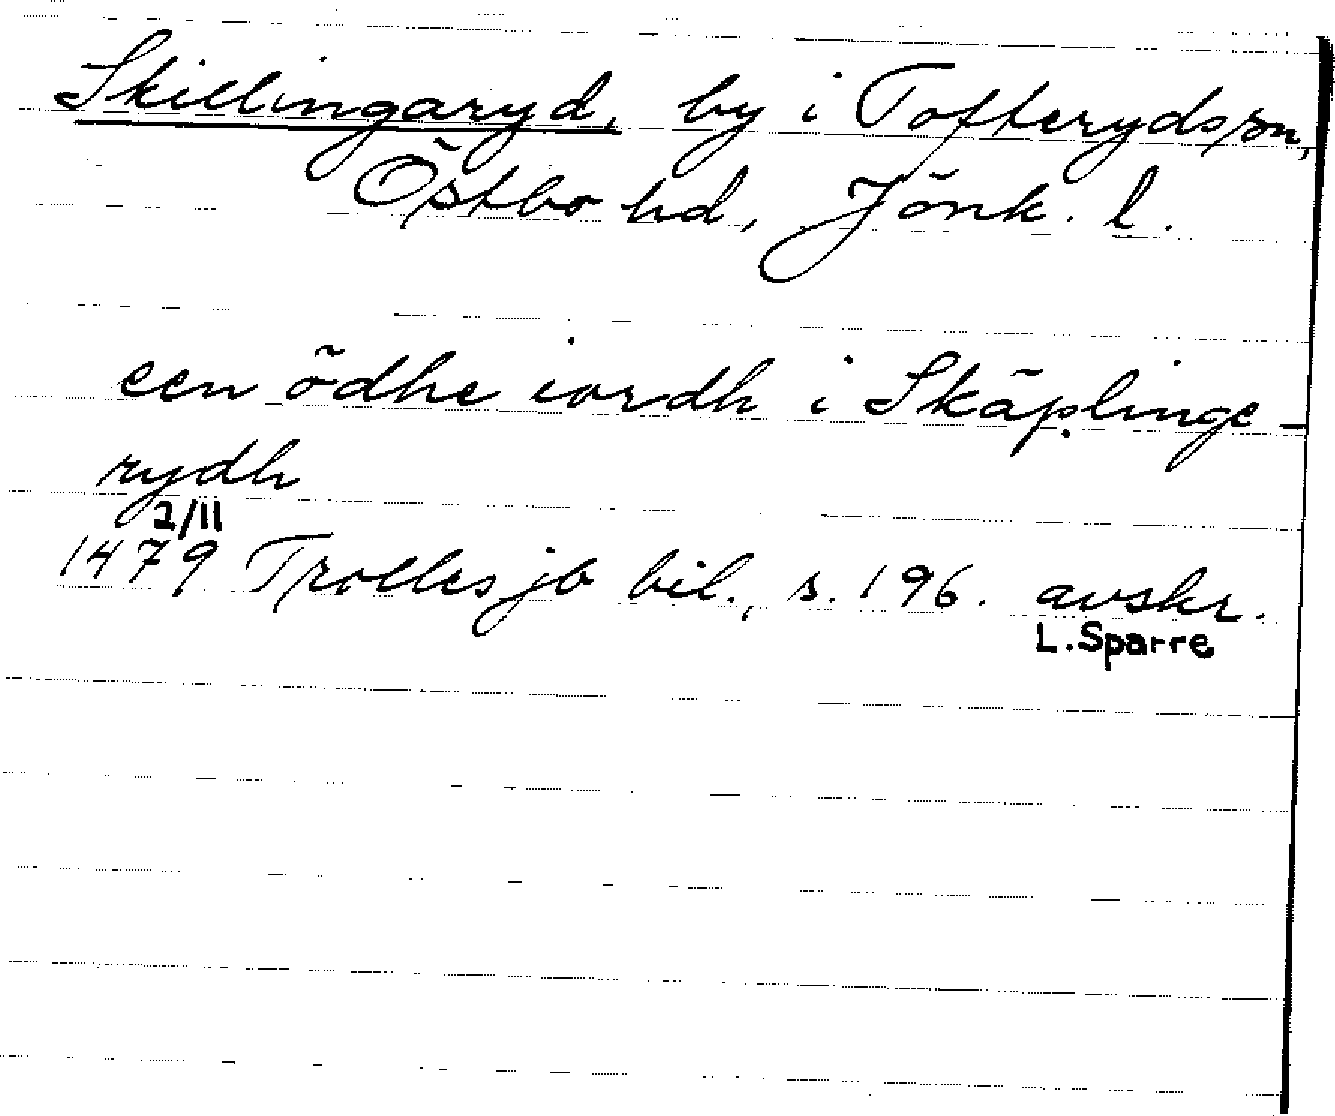 Skillingaryd, by i Tofterydssn,
Östbo hd, Jönk. l.
een ödhe iordh i Skäplinge-
rydh
2/11
1479 Trolles jb bil., s. 196. avskr.
L. Sparre